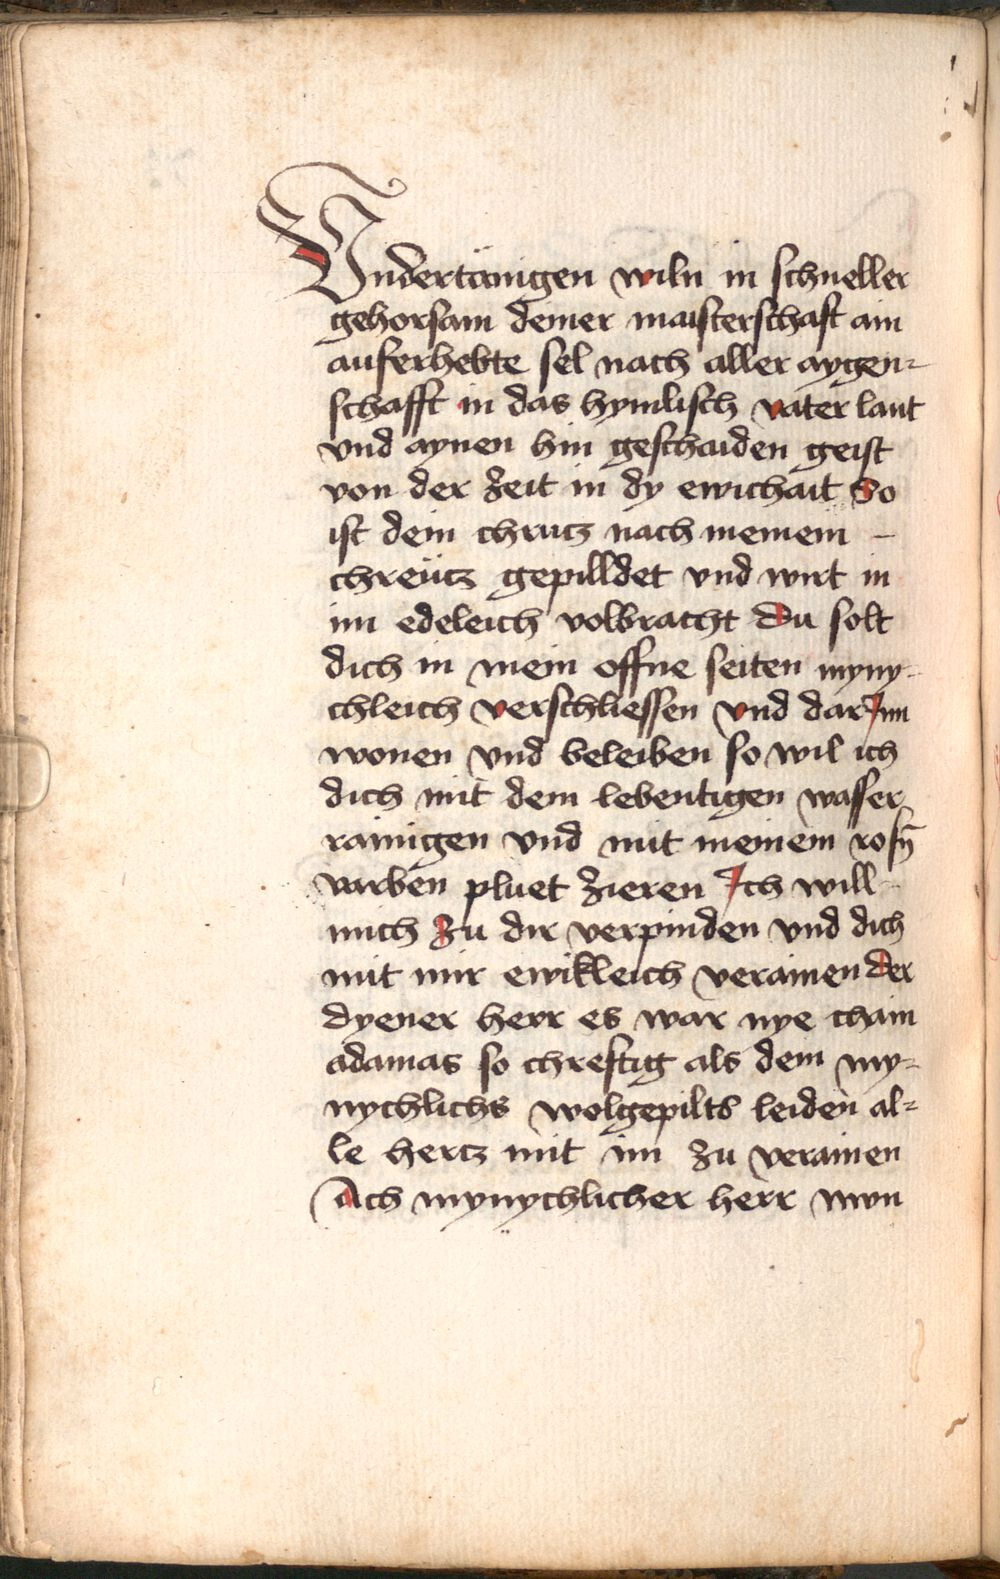 Vndertänigen wiln in schneller
gehorsam deiner maisterschaft ain
auferhebte sel nach aller aygen=
schafft in das hymlisch vater lant
vnd aynen hin geschaiden geist
von der zeit in dy ewichait So
ist dein chrucz nach meinem –
chreücz gepilldet vnd wirt in
im edeleich volbracht Du solt
dich in mein offne seiten myny-
chleich verschliessen vnd dar Jnn
wonen vnd beleiben so wil ich
dich mit dem lebentigen wasser
rainigen vnd mit meinem rosñ
varben pluet zieren Jch will –
mich zu dir verpinden vnd dich
mit mir ewikleich verainen Der
dyener herr es war nye chain
adamas so chreftig als dein my=
nychlichs wolgepilts leiden al=
le hercz mit im zu verainen
Ach mynychlicher herr nwn